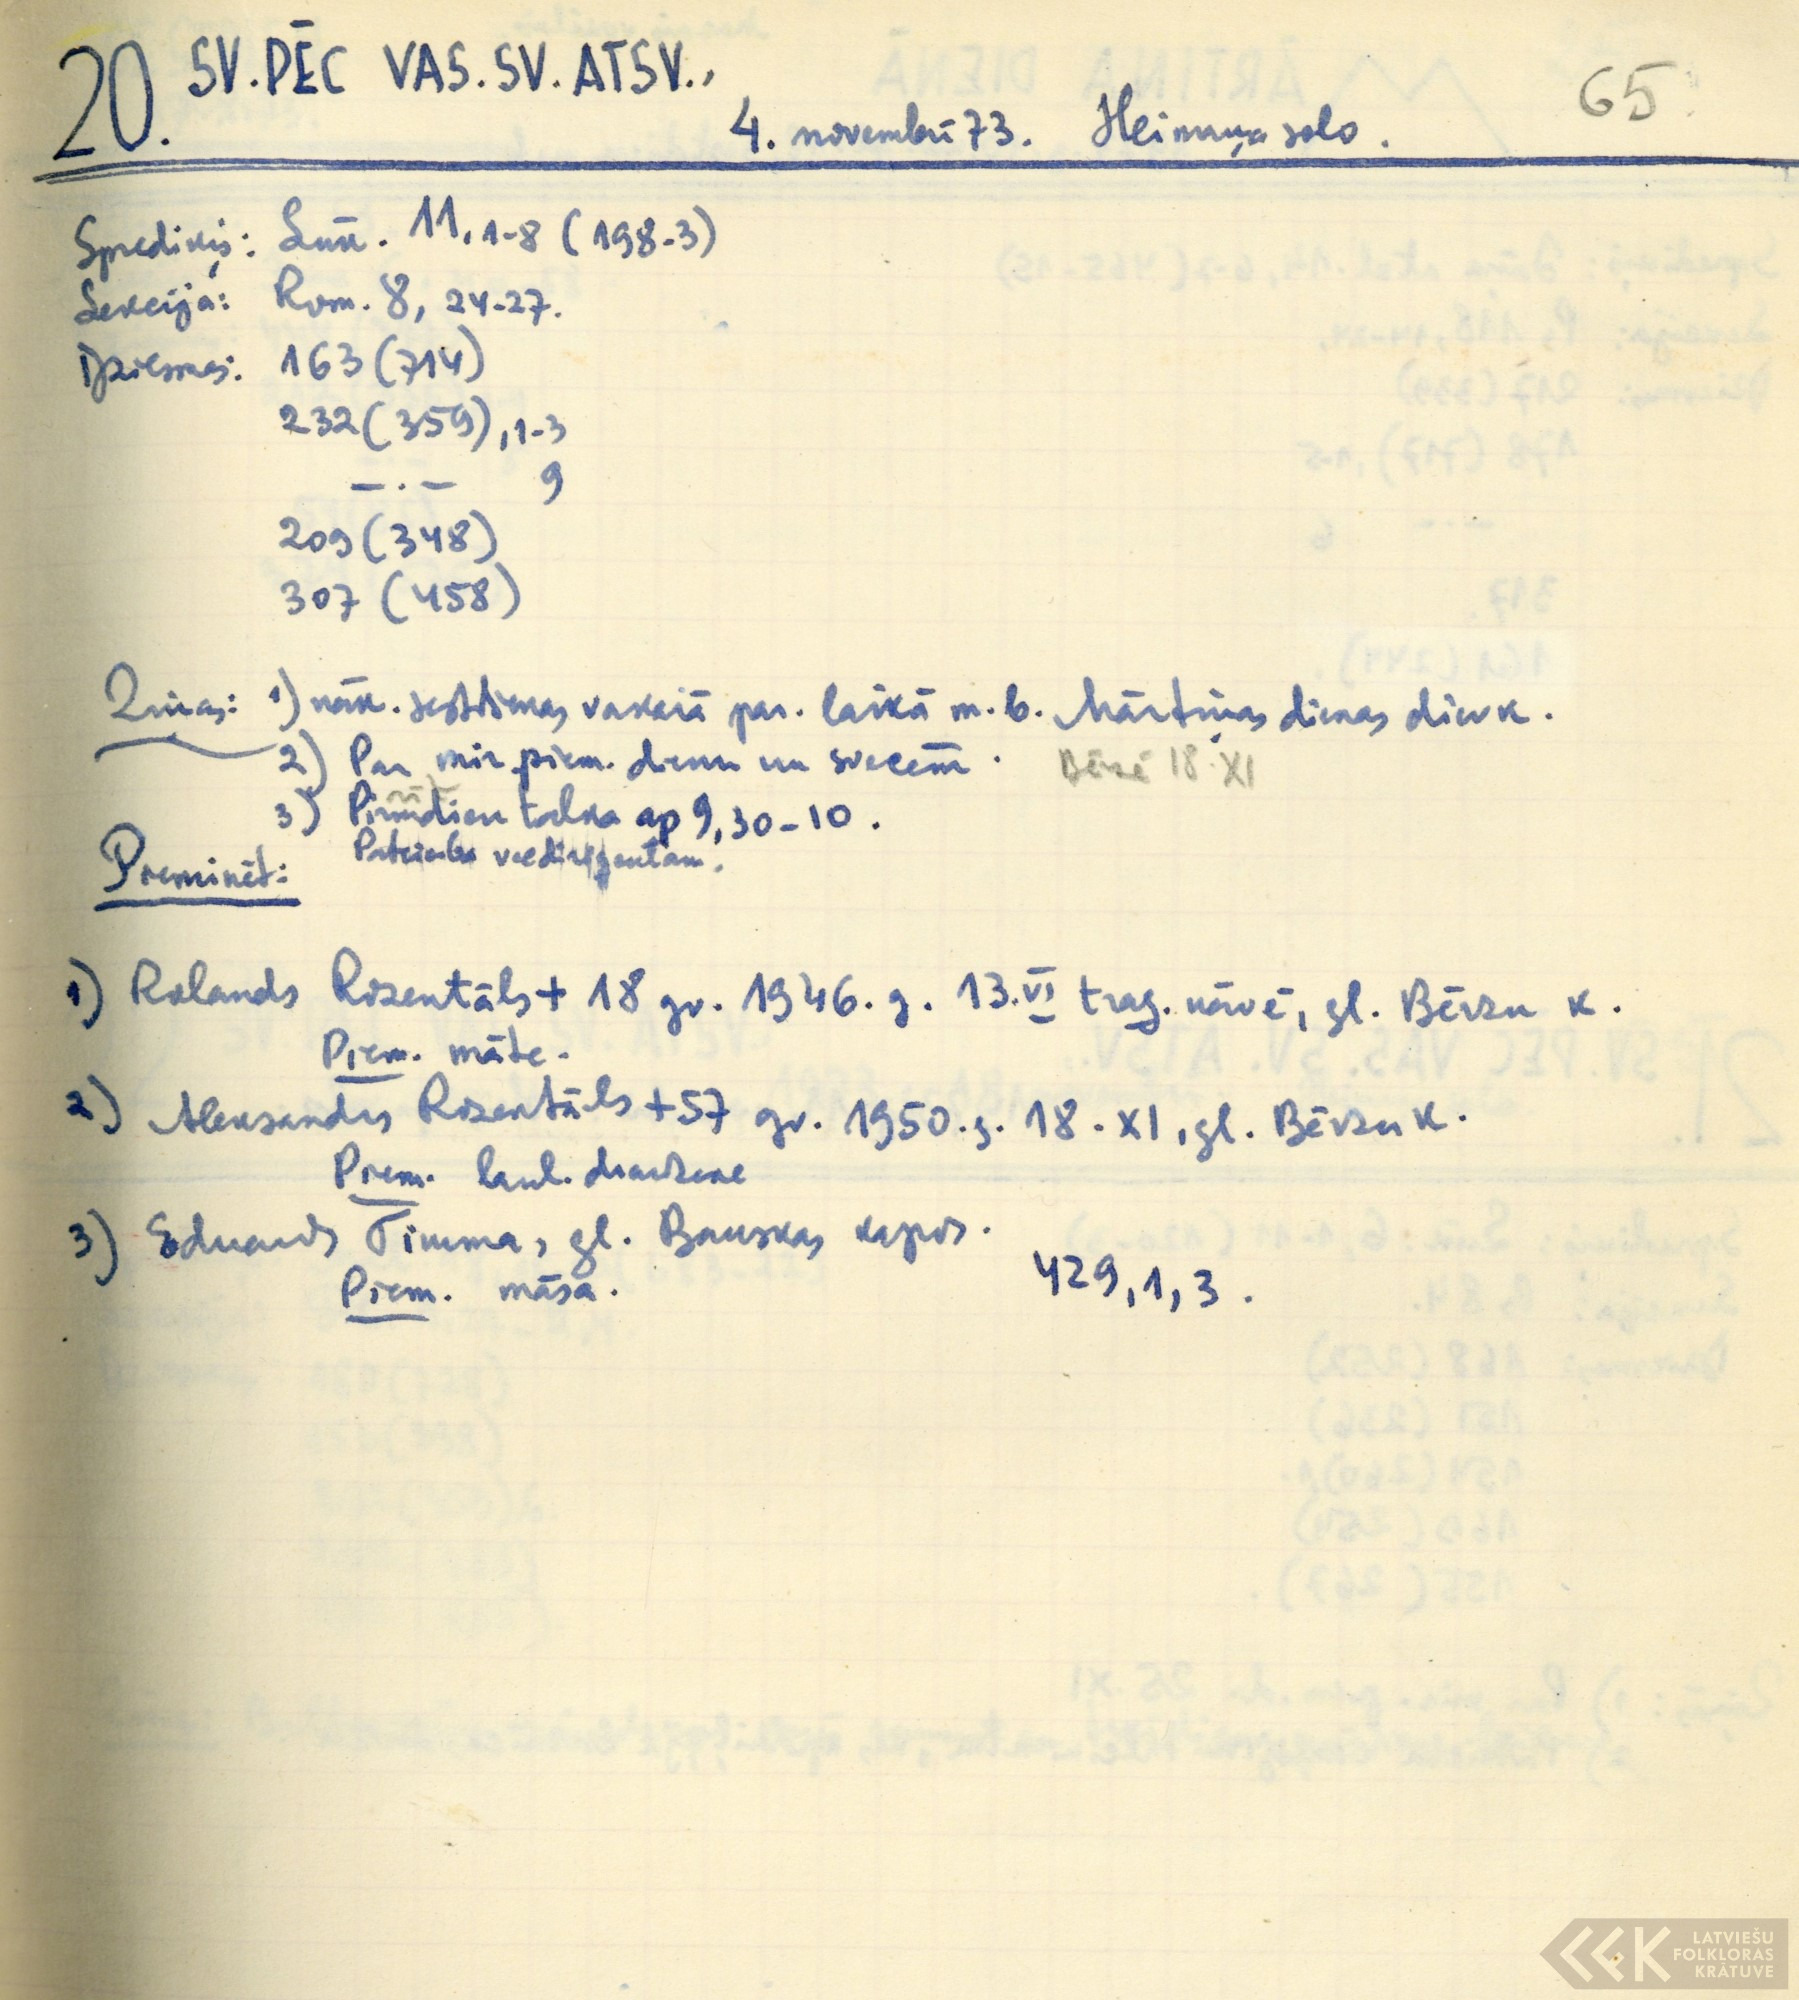 65
20. SV. PĒC VAS. SV. ATSV.,
4. novembrī 73. Heimaņa solo.
Sprediķis: Lūk. 11, 1-8 (198-3)
Lekcija: Rom. 8, 24-27.
Dziesmas: 163 (714)
232 (359), 1-3
— . — 9
209 (348)
307 (458)
Ziņas: 1) nāk. sestdienas vakarā par. laikā m. b. Mārtiņas dienas dievk.
2) Par mir. piem. dienu un svecēm. Bērzē 18. XI
3) Pirmdien talka ap 9,30-10.
Pateicība
Pieminēt:
1) Rolands Rozentāls + 18 gv. 1946. g. 13. VI trag. nāvē, gl. Bērzu K.
Piem. māte.
2) Aleksandrs Rozentāls + 57 gv. 1950. g. 18. XI, gl. Bērzu K.
Piem. laul. draudzene
3) Eduards Timma, gl. Bauskas kapos.
Piem. māsa.
429, 1, 3.
LATVIEŠU
FOLKLORAS
KRĀTUVE